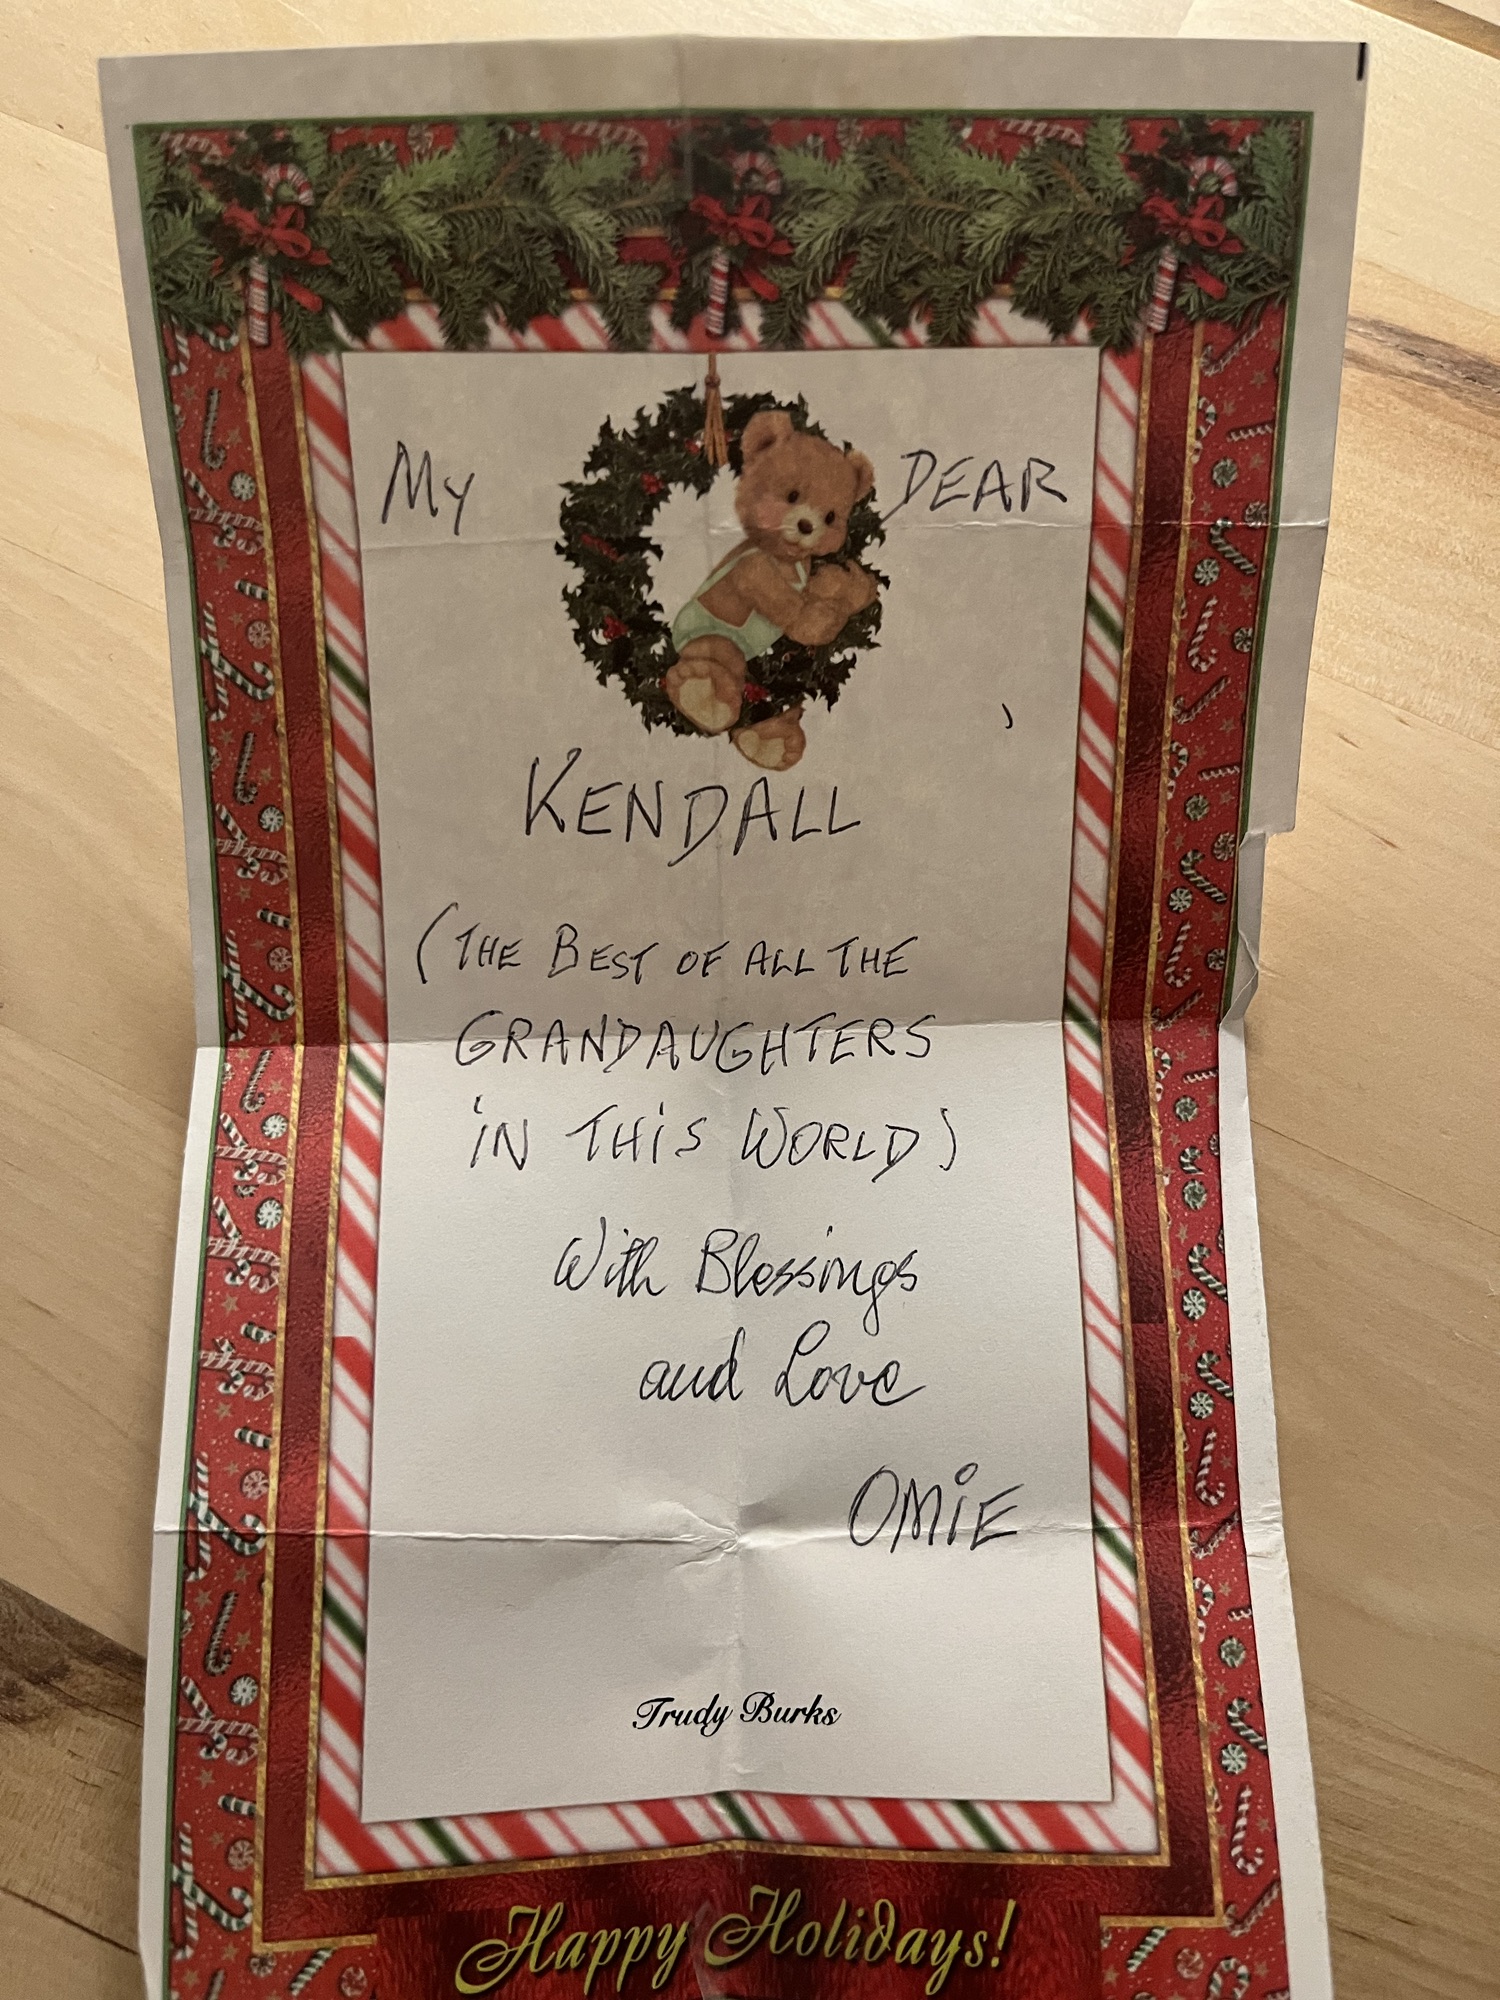 My DEAR
KENDALL
(THE BEST OF ALL THE
GRANDAUGHTERS
IN THIS WORLD)
With Blessings
and Love
OMIE
Trudy Burks
Happy Holidays!